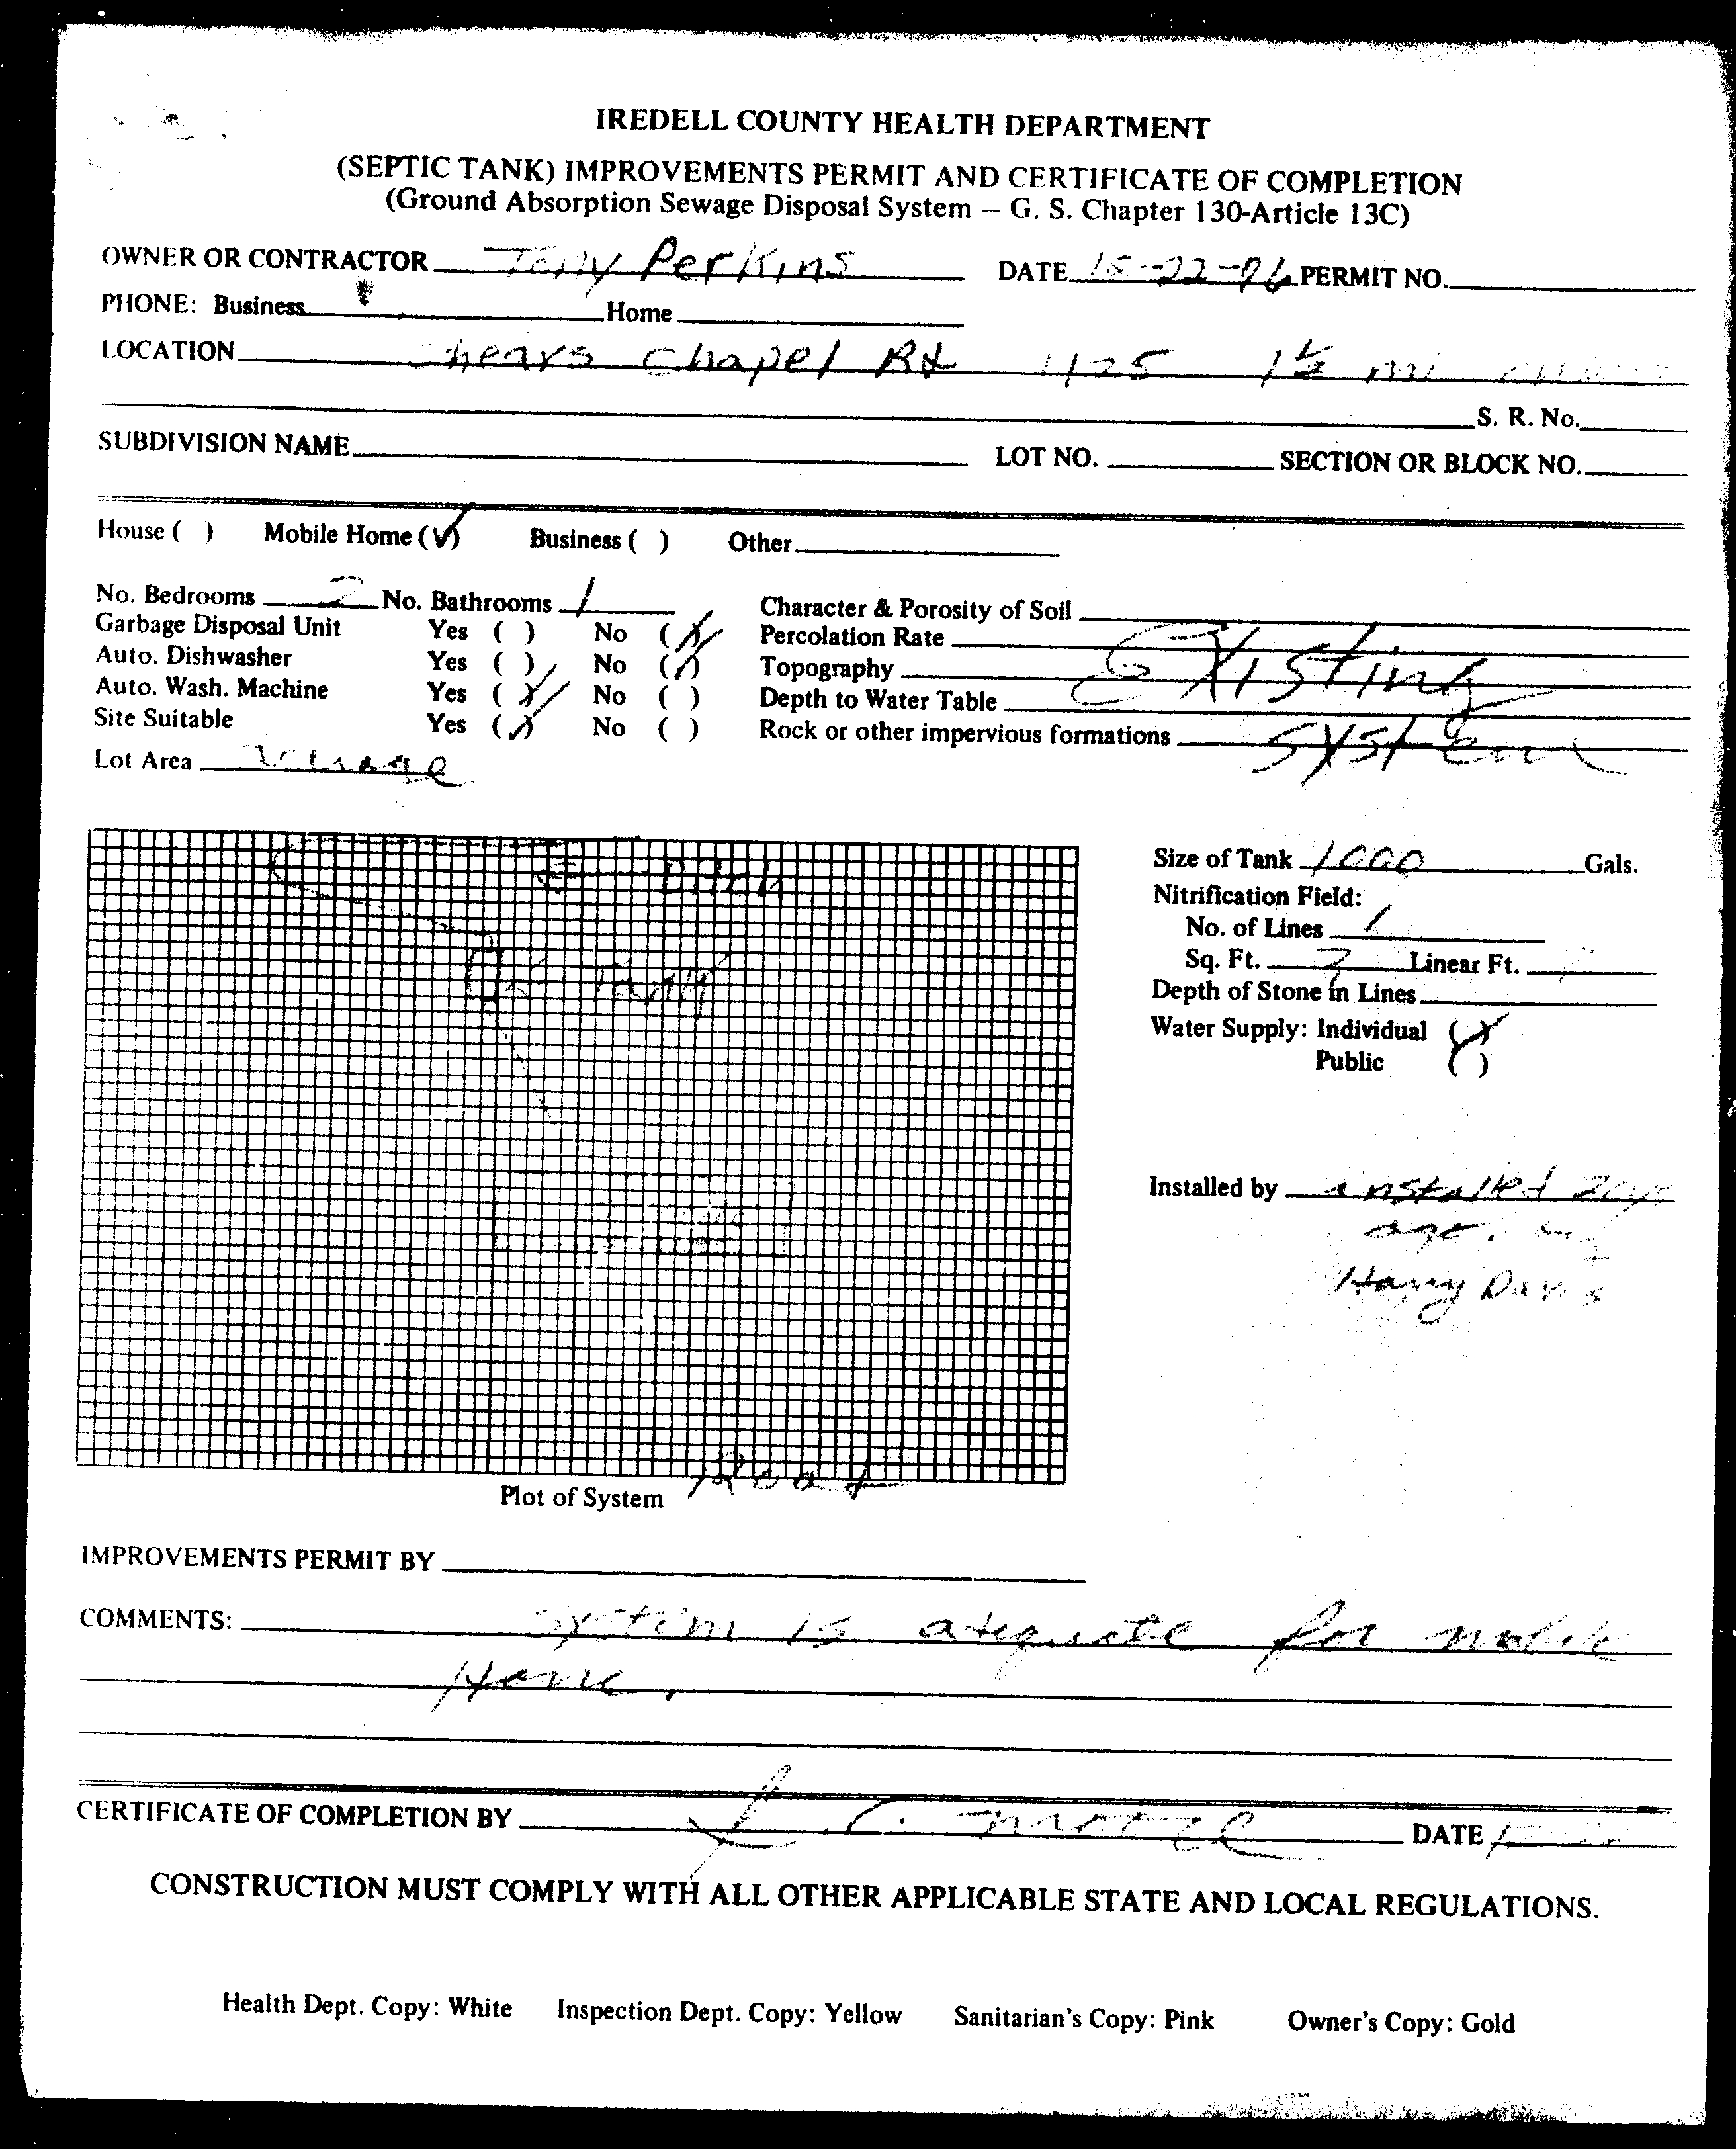 IREDELL COUNTY HEALTH DEPARTMENT
(SEPTIC TANK) IMPROVEMENTS PERMIT AND CERTIFICATE OF COMPLETION
(Ground Absorption Sewage Disposal System – G. S. Chapter 130-Article 13C)
OWNER OR CONTRACTOR Perkins DATE PERMIT NO.
PHONE: Business Home
LOCATION Chapel Rd 1125 1½ mi
S. R. No.
SUBDIVISION NAME LOT NO. SECTION OR BLOCK NO.
House ( ) Mobile Home (✓) Business ( ) Other
No. Bedrooms 2 No. Bathrooms 1 Character & Porosity of Soil
Garbage Disposal Unit Yes ( ) No (✓) Percolation Rate
Auto. Dishwasher Yes ( ) No (✓) Topography Existing
Auto. Wash. Machine Yes (✓) No ( ) Depth to Water Table
Site Suitable Yes (✓) No ( ) Rock or other impervious formations system
Lot Area
Size of Tank 1000 Gals.
Ditch
Nitrification Field:
No. of Lines 1
Sq. Ft. ? Linear Ft.
Tank
Depth of Stone in Lines
Water Supply: Individual (✓)
Public ( )
Installed by installed
ago.
Harry Davis
Road
Plot of System
IMPROVEMENTS PERMIT BY
COMMENTS: system is adequate for mobile
Home.
CERTIFICATE OF COMPLETION BY DATE
CONSTRUCTION MUST COMPLY WITH ALL OTHER APPLICABLE STATE AND LOCAL REGULATIONS.
Health Dept. Copy: White Inspection Dept. Copy: Yellow Sanitarian's Copy: Pink Owner's Copy: Gold